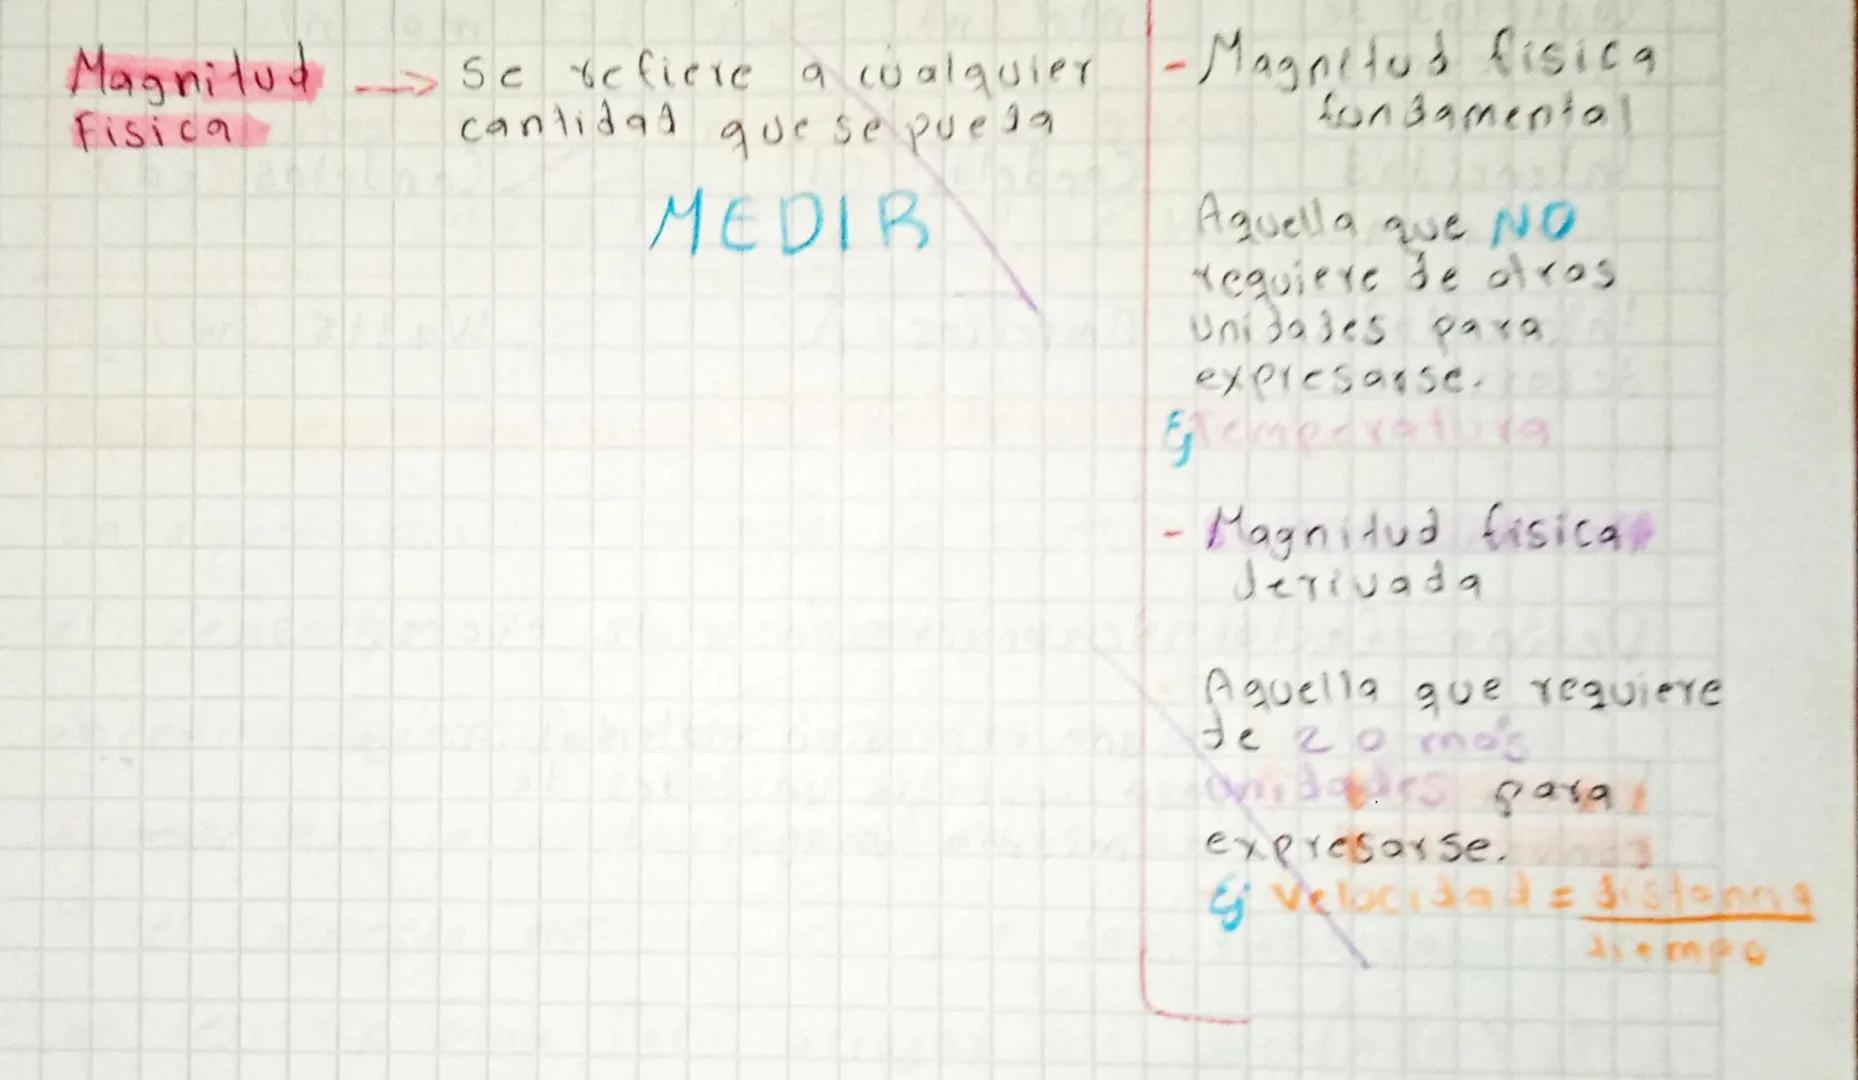 Magnitud
Fisica
→ Se refiere a cualquier
cantidad que se pueda
MEDIR
- Magnitud fisica
fundamental
Aquella que NO
requiere de otras
unidades para
expresarse.
Ej Temperatura
- Magnitud fisica
derivada
Aquella que requiere
de 2 o más
unidades para
expresarse.
Ej Velocidad = distancia
tiempo